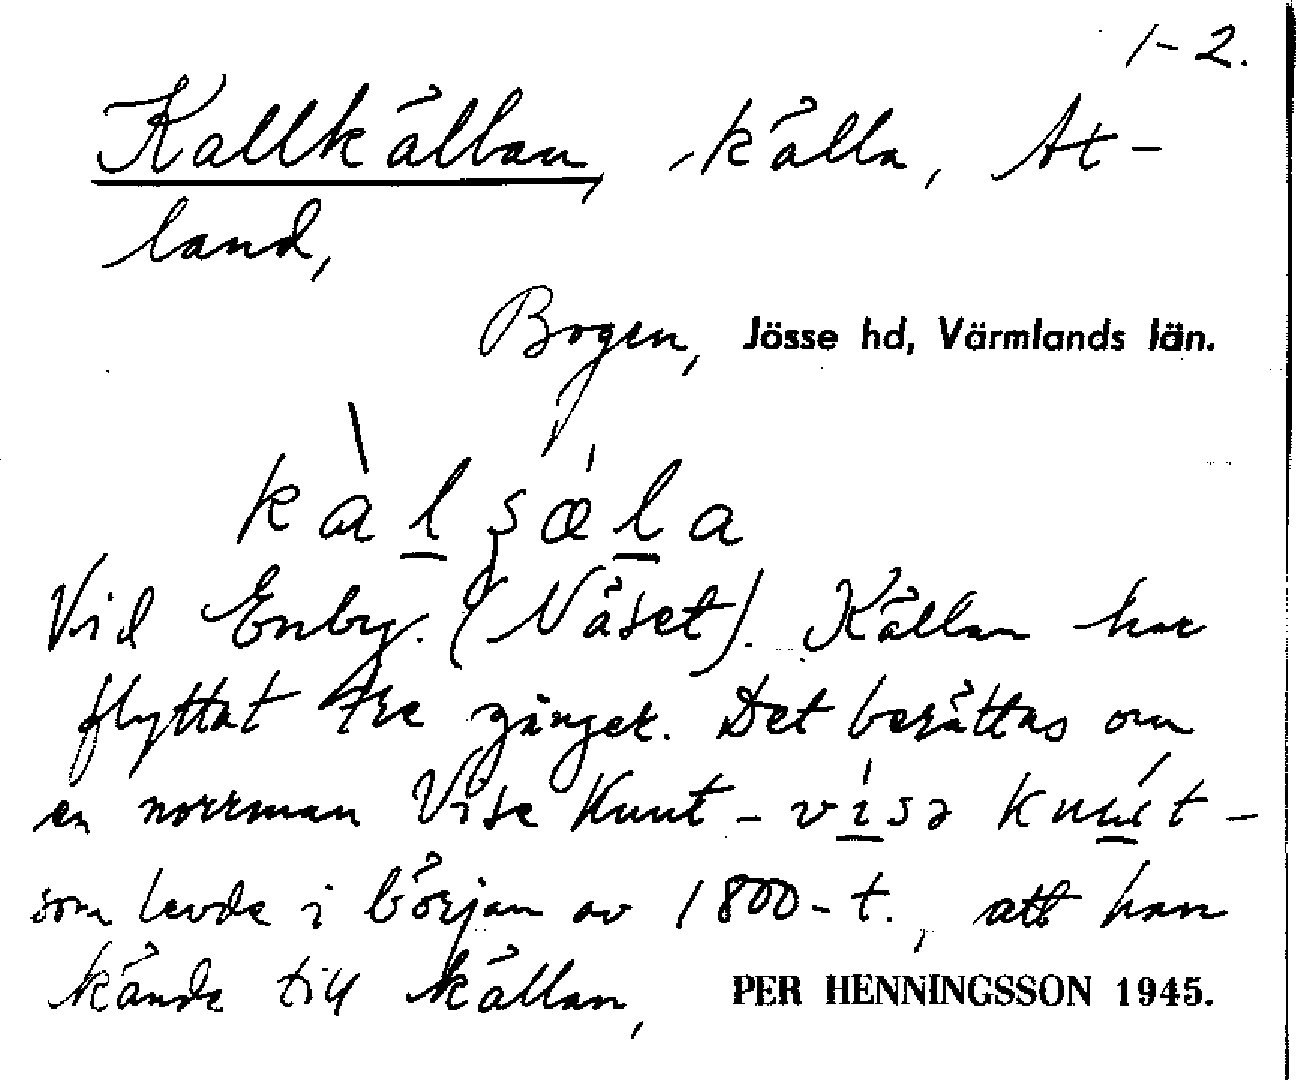 1-2.
Kallkällan, källa, At-
land,
Bogen, Jösse hd, Värmlands län.
kàlşǽla
Vid Enby. (Näset). Källan har
flyttat tre gånger. Det berättas om
en norrman Vise Knut - vísə knút -
som levde i början av 1800-t., att han
kände till källan,
PER HENNINGSSON 1945.